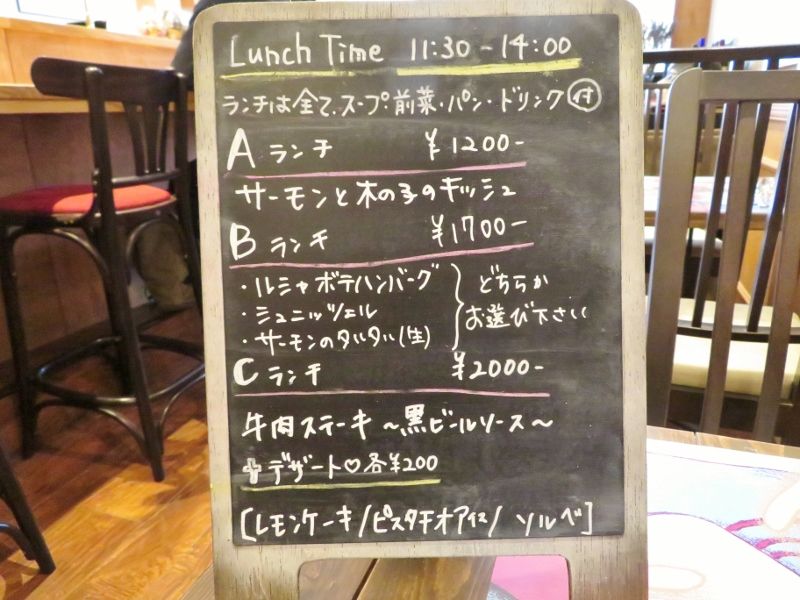 Lunch Time 11:30-14:00
ランチは全て、スープ・前菜・パン・ドリンク付
A ランチ ¥1200-
サーモンと木の子のキッシュ
B ランチ ¥1700-
・ルシャボテハンバーグ
・シュニッツェル
・サーモンのタルタル(生)
どちらか
お選び下さい
C ランチ ¥2000-
牛肉ステーキ ～黒ビールソース～
+デザート♡各¥200
[レモンケーキ/ピスタチオアイス/ ソルベ]